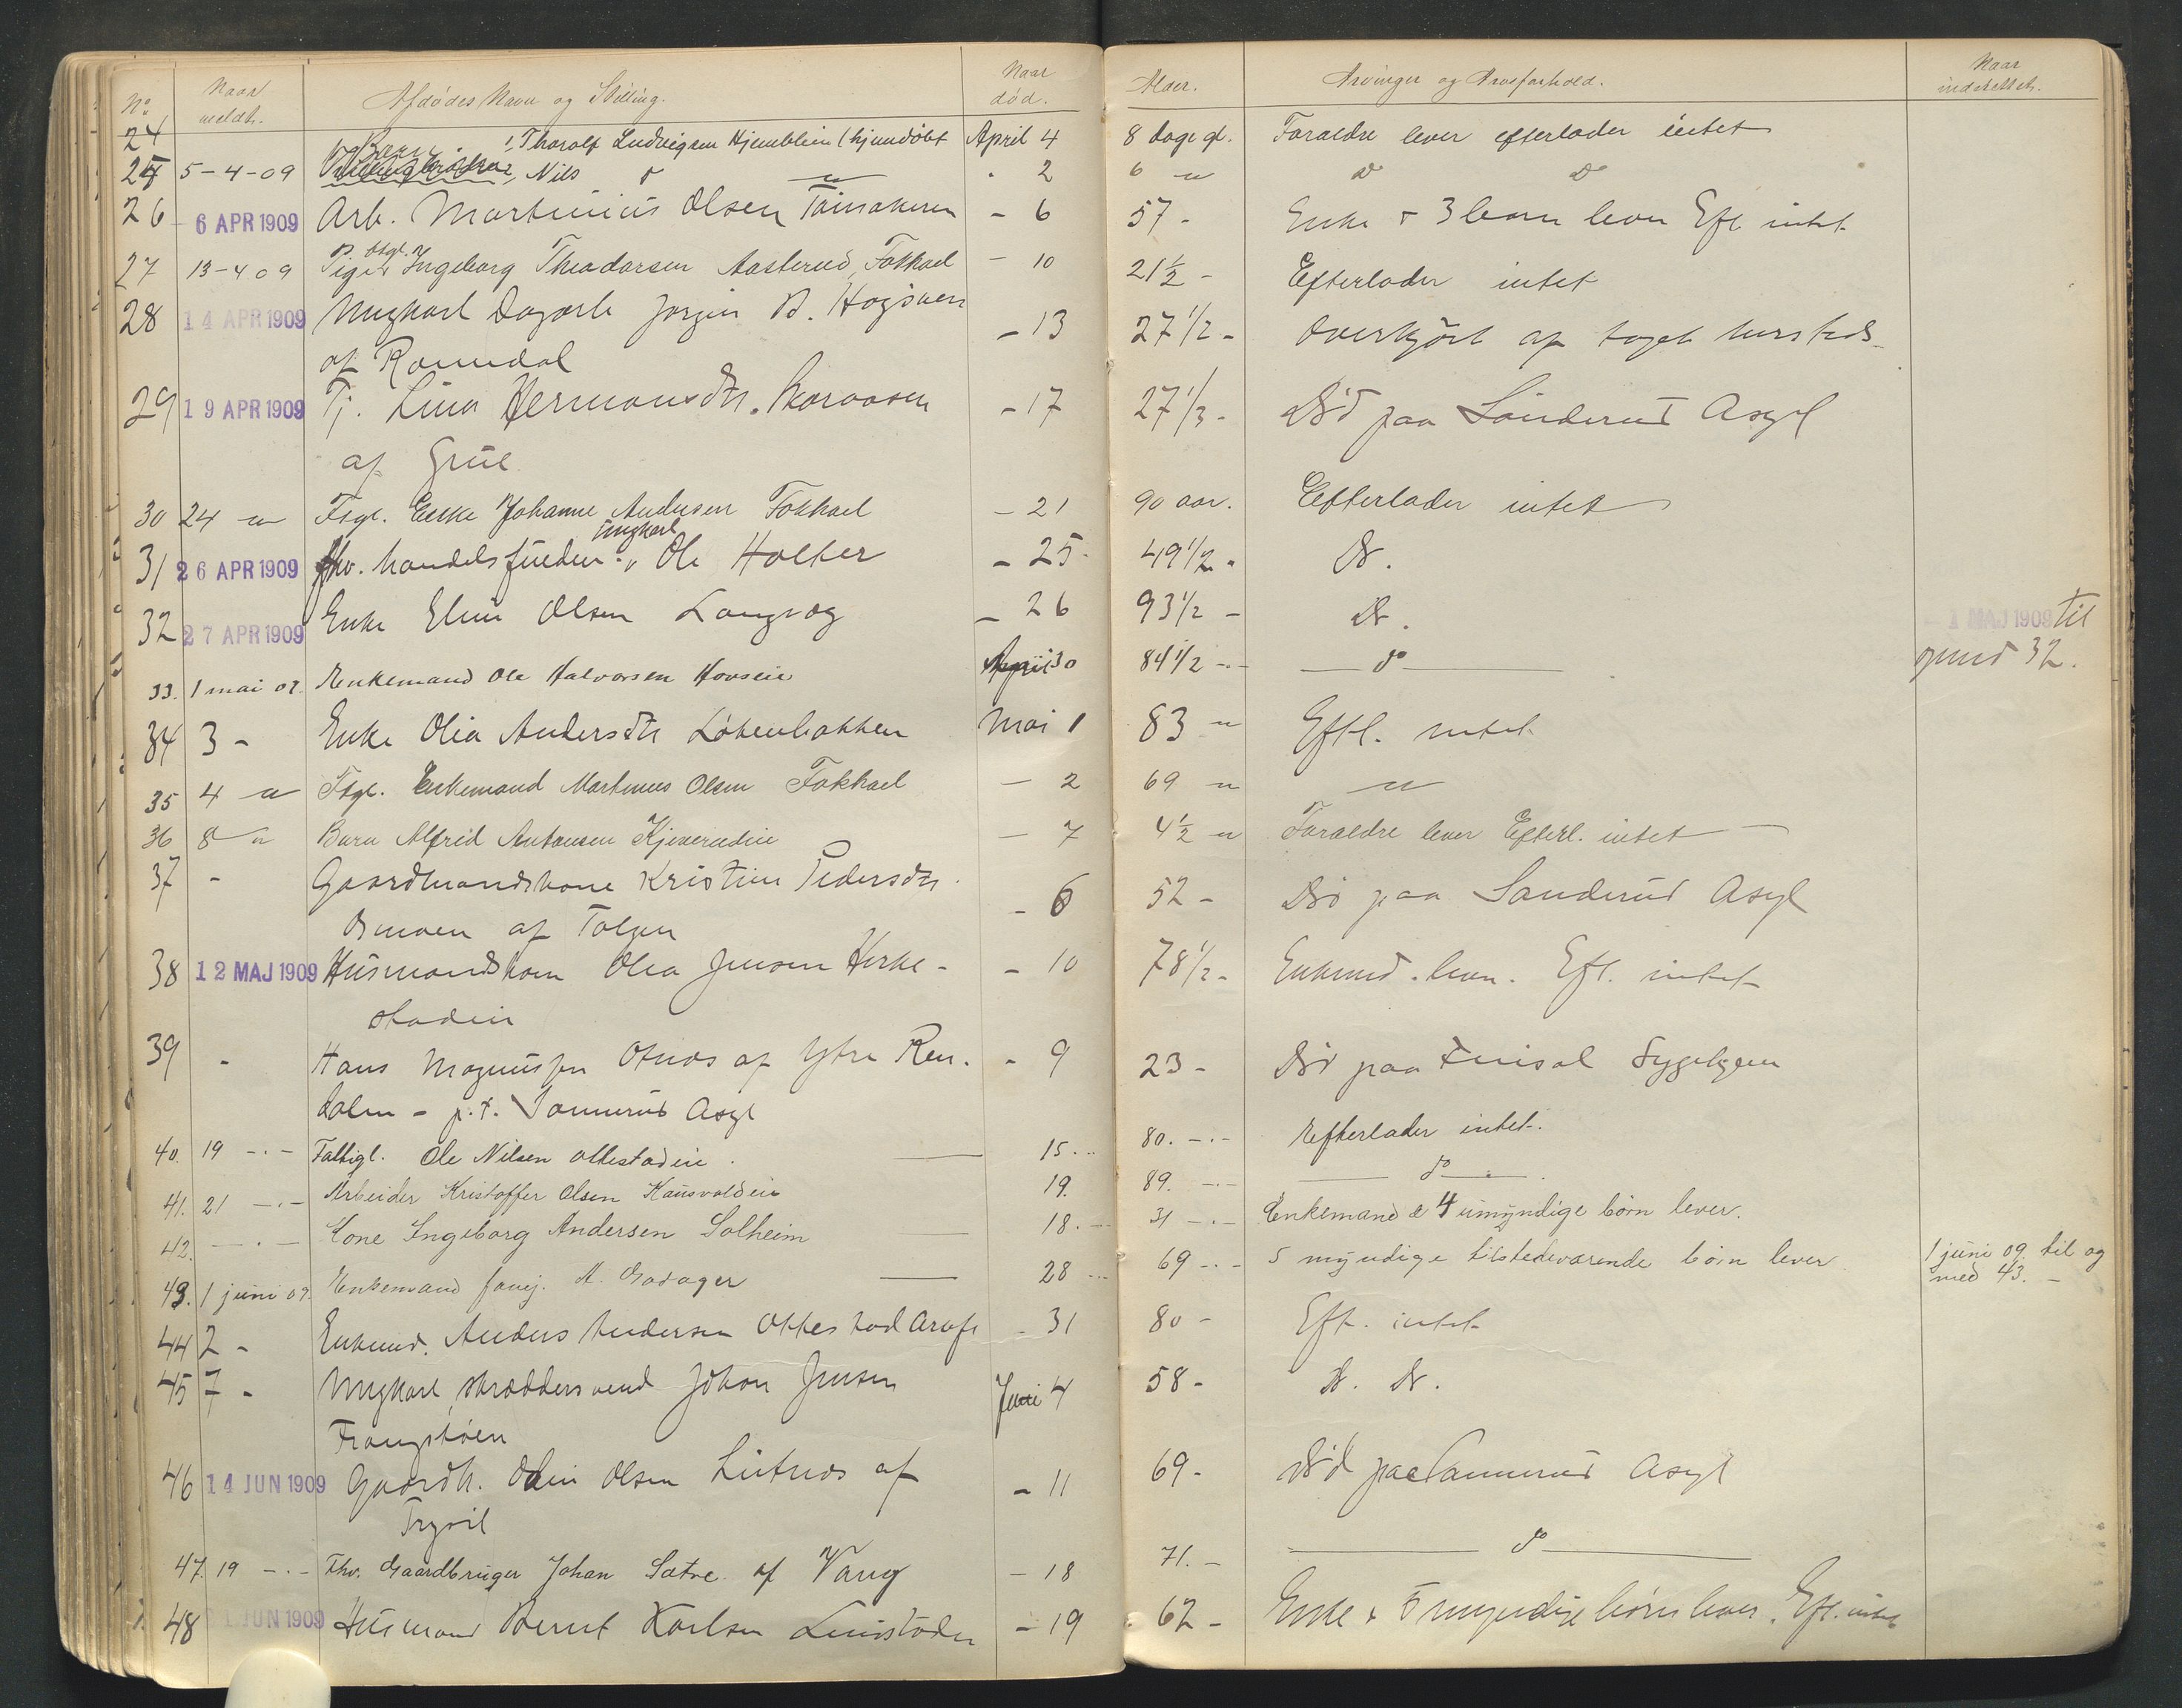 No Naar meldt. Afdødes Navn og Stilling. Naar død. Alder. Arvinger og Arveforhold. Naar indtellet.
24 Børn : Thoralf Ludvigsen Hjemblein (hjemdøbt April 4 8 dage gl. Foraeldre lever efterlader intet
25 5-4-09 Nils do " - 2 6 " do do
26 6 APR 1909 Arb. Martinius Olsen - 6 57 - Enke + 3 børn lever Eft intet
27 13-4 09 Pige fsgl. Ingeborg Theodorsen Aasterud, Fokhael - 10 21½ - Efterlader intet
28 14 APR 1909 Ungkarl Dagarb Jørgen B. Hogsveen
af Romedal - 13 27 1/2 - Overkjørt af toget hersteds
29 19 APR 1909 Tj. Lina Hermansdtr. - 17 27 1/3 - Død paa Sanderud Asyl
af Grue
30 24 " Fsgl. Enke Johanne Andersen Fokhael - 21 90 aar. Efterlader intet
31 26 APR 1909 fhv. handelsfuldm., Ungkarl Ole Holter - 25 49 1/2 - Do.
32 27 APR 1909 Enke Eline Olsen Langvag - 26 93 1/2 - Do. - 1 MAJ 1909 til
33. 1 mai 09. Enkemand Ole Halvorsen Hovseie April 30 84 1/2 -.- do og med 32.
34 3 - Enke Olea Andersdtr Løtenbakken Mai 1 83 " Eftl. intet
35 4 " Fsgl. Enkemand Martinus Olsen Fokhael - 2 69 " "
36 8 " Barn Alfred Antonsen Kjeverudeie - 7 4½ " Foraeldre lever Efterl. intet
37 - Gaardmandskone Kristine Pedersdtr.
af Tolgen - 6 52 - Død paa Sanderud Asyl
38 12 MAJ 1909 Husmandskone Olea Jensen Hirke-
stadeie - 10 78 1/2 - Enkemd. lever. Eft. intet
39 - Hans Magnussen Otnes af Ytre Ren-
dalen - p.t. Sannerud Asyl - 9 23 - Død paa Finsal Sygehjem
40. 19 -.- Fattigl. Ole Nilsen Ottestadeie. 15 80. -.- Efterlader intet.
41. 21 -.- Arbeider Kristoffer Olsen Kausvoldeie 19. 89. -.- do
42. -.- Kone Ingeborg Andersen Solheim 18. 31 -.- Enkemand & 4 umyndige børn lever.
43. 1 juni 09. Enkemand A. Godager 28 69 -.- 5 myndige tilstedeværende børn lever 1 juni 09. til og
med 43. -
44 2 - Enkemd. Anders Andersen Ottestad - 31 80 - Eft. intet
45 7 - Ungkarl skræddersvend Johan Jensen
Frangstøen Juni 4 58 - Do. Do.
46 14 JUN 1909 Gaardb. Odin Olsen Lutnes af
Trysil - 11 69 - Død paa Sannerud Asyl
47. 19 -.- Fhv. Gaardbruger Johan Sætre af Vang - 18 71. - do
48 JUN 1909 Husmand Bernt Karlsen - 19 62 - Enke & 5 myndige børn lever. Eft. intet